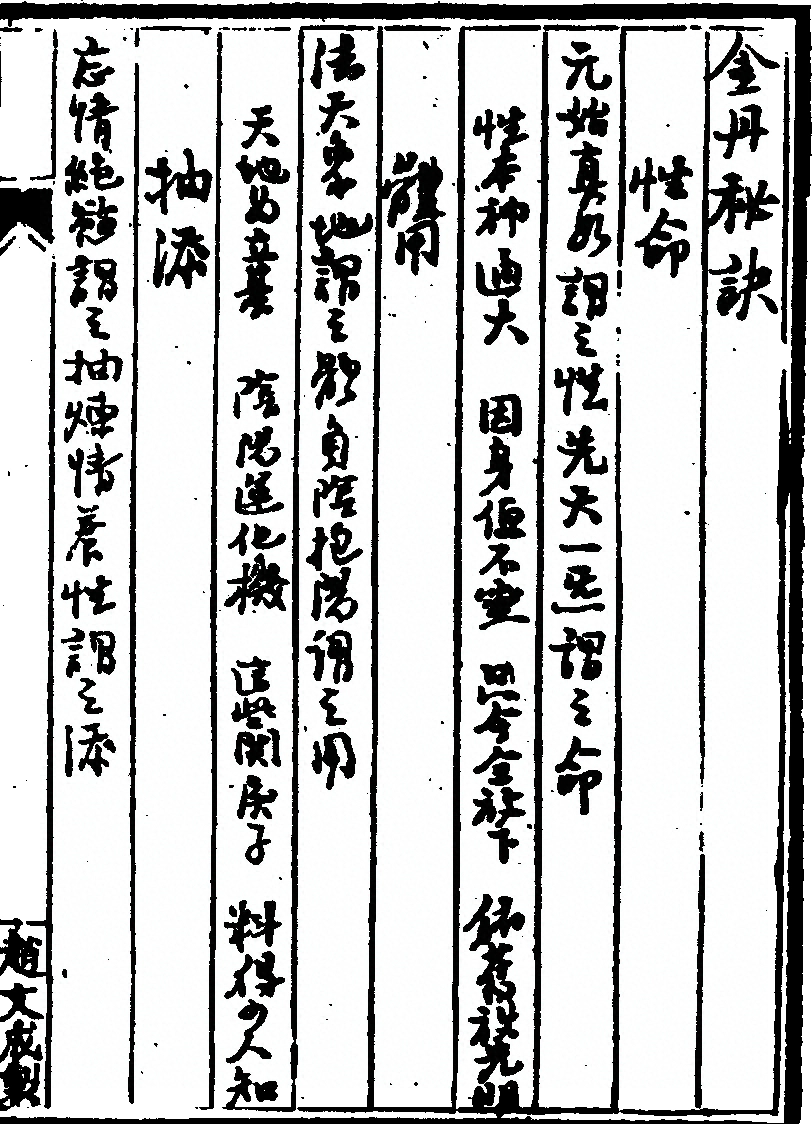 金丹秘訣
性命
元始真如謂之性先天一炁謂之命
性本神通大　因身便不靈　照今全放下　依舊放光明
體用
法天象地謂之體負陰抱陽謂之用
天地為立基　陰陽運化機　這些關戾子　料得少人知
抽添
忘情絕慾謂之抽煉情養性謂之添
趙文成製